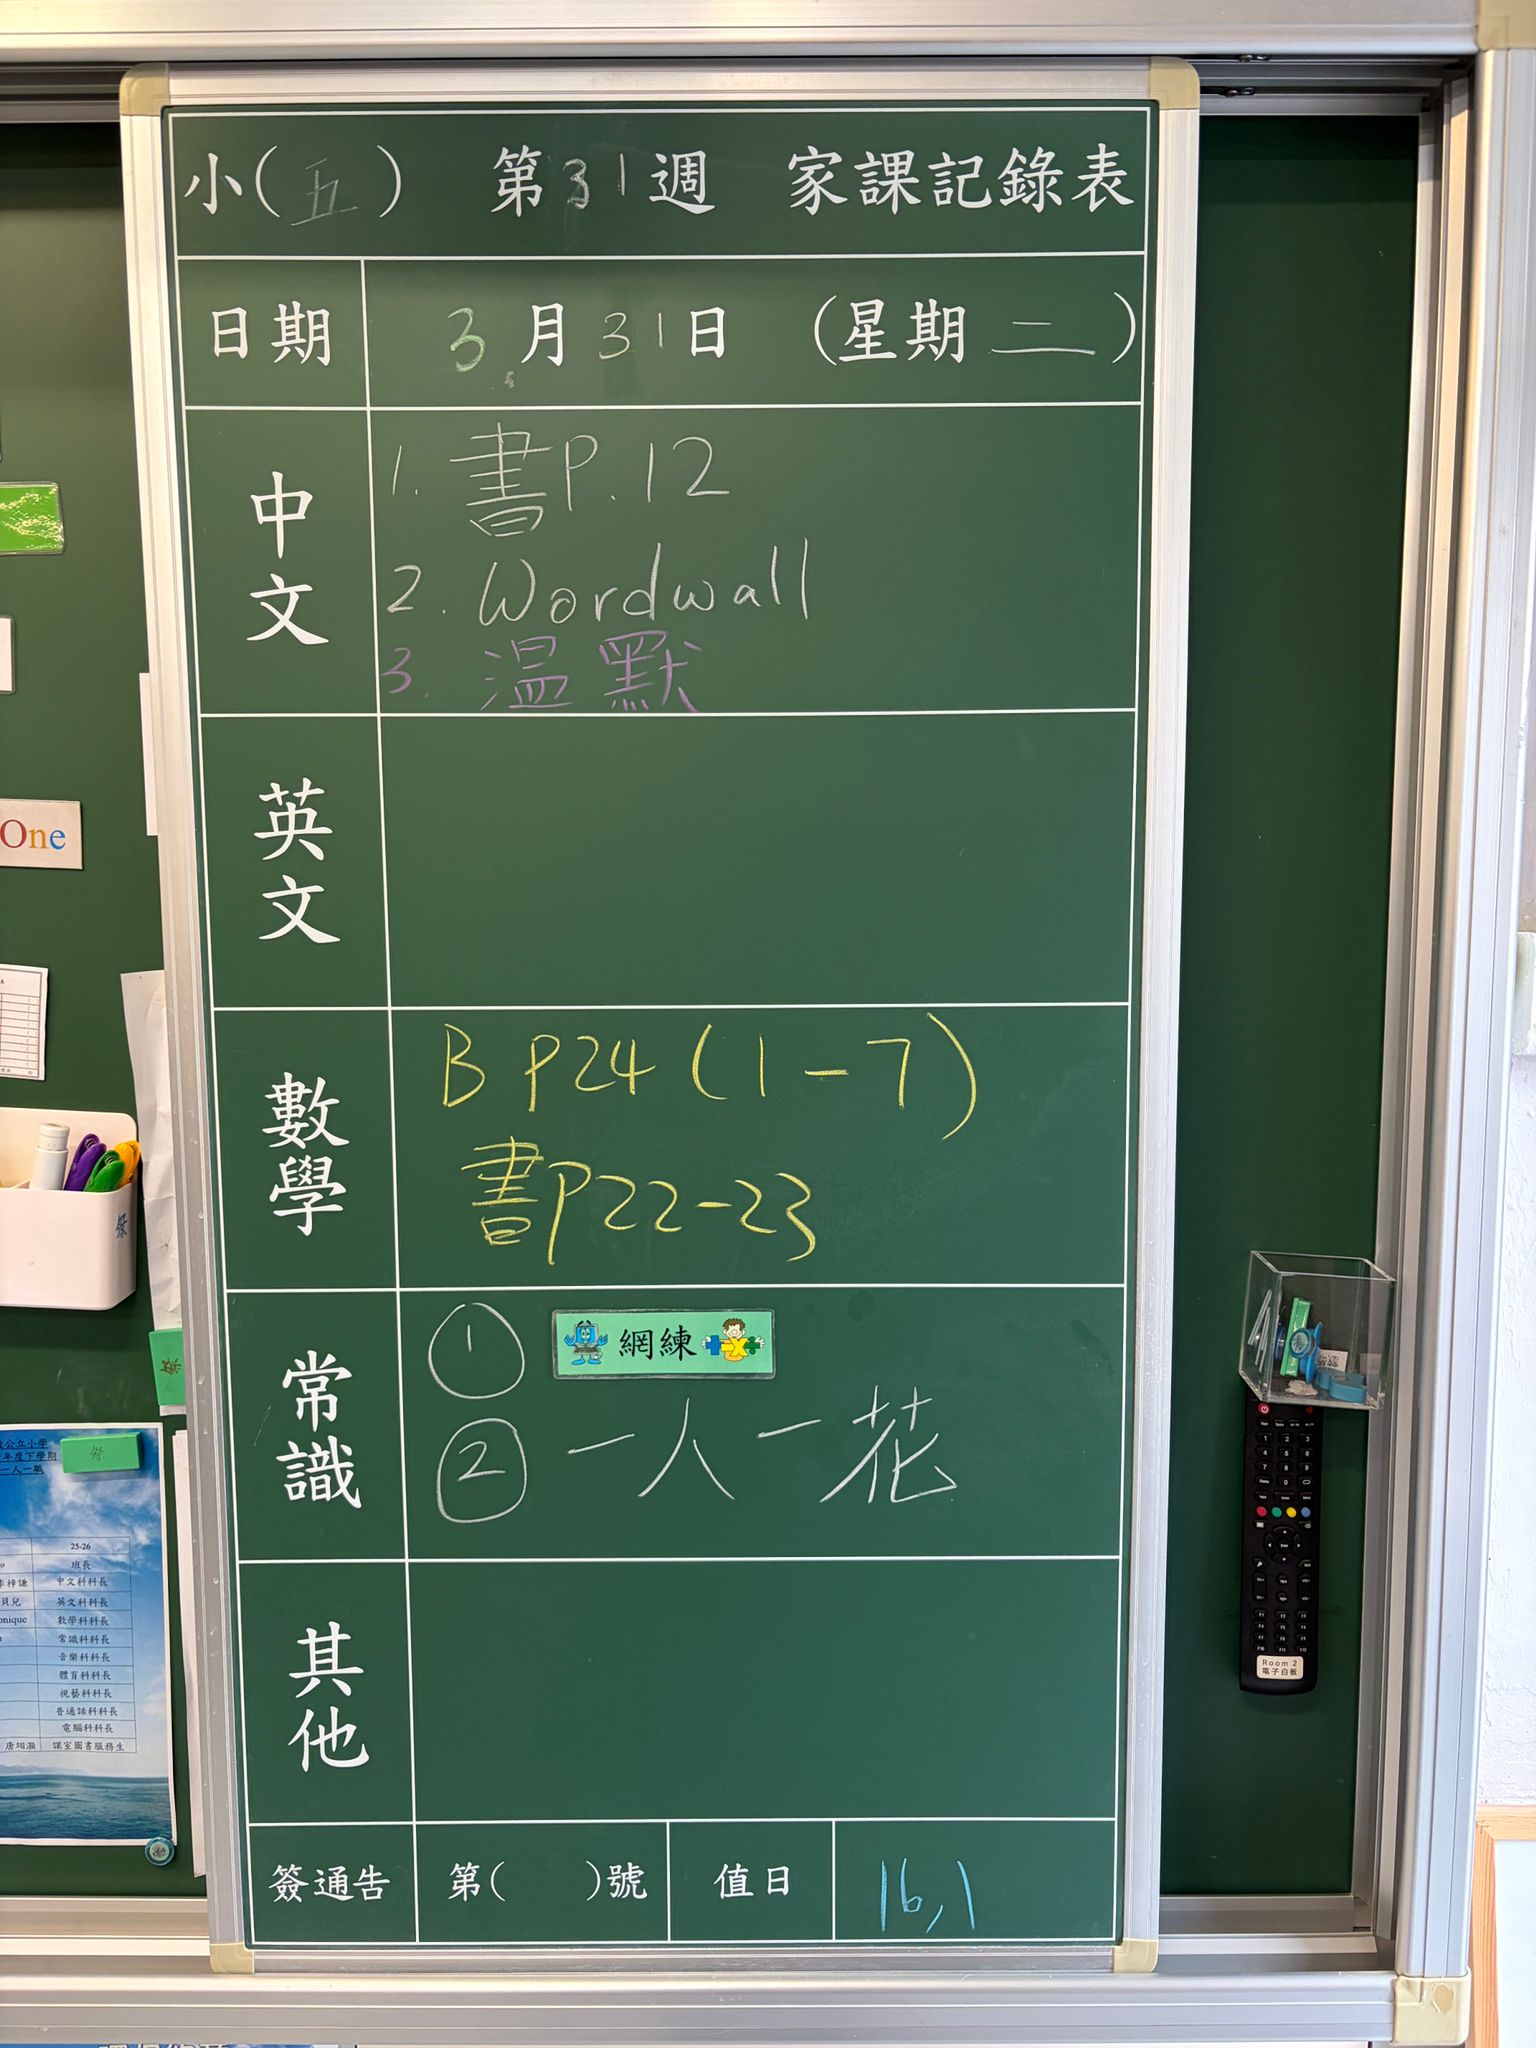 小(五) 第31週 家課記錄表
日期 3月31日 (星期二)
中文
1. 書P.12
2. Wordwall
3. 溫默
英文
數學
B P24 (1-7)
書P22-23
常識
① 網練
② 一人一花
其他
簽通告 第( )號 值日 16,1
One
公立小學
年度下學期
一人一職
25-26
班長
梓謙 中文科科長
貝兒 英文科科長
onique 數學科科長
常識科科長
音樂科科長
體育科科長
視藝科科長
普通話科科長
電腦科科長
唐翊灝 課室圖書服務生
Room 2
電子白板